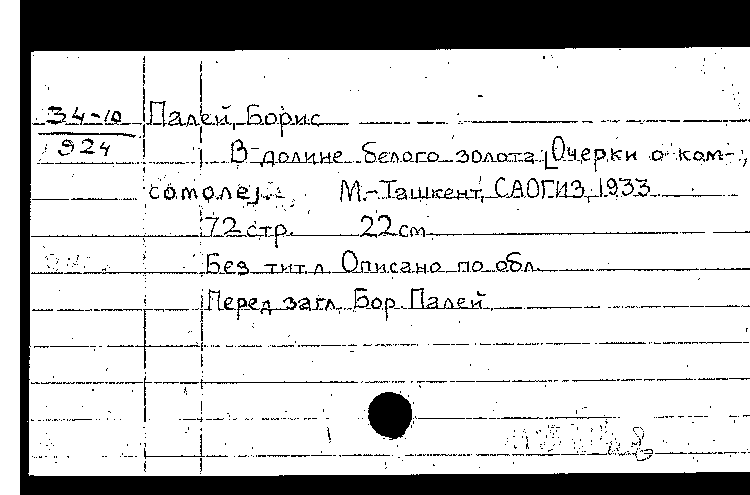 34-10
924
Палей, Борис
В долине белого золота [Очерки о ком-
сомоле].
М.-Ташкент, САОГИЗ, 1933
72 стр. 22 см.
Без тит. л. Описано по обл.
Перед загл. Бор. Палей